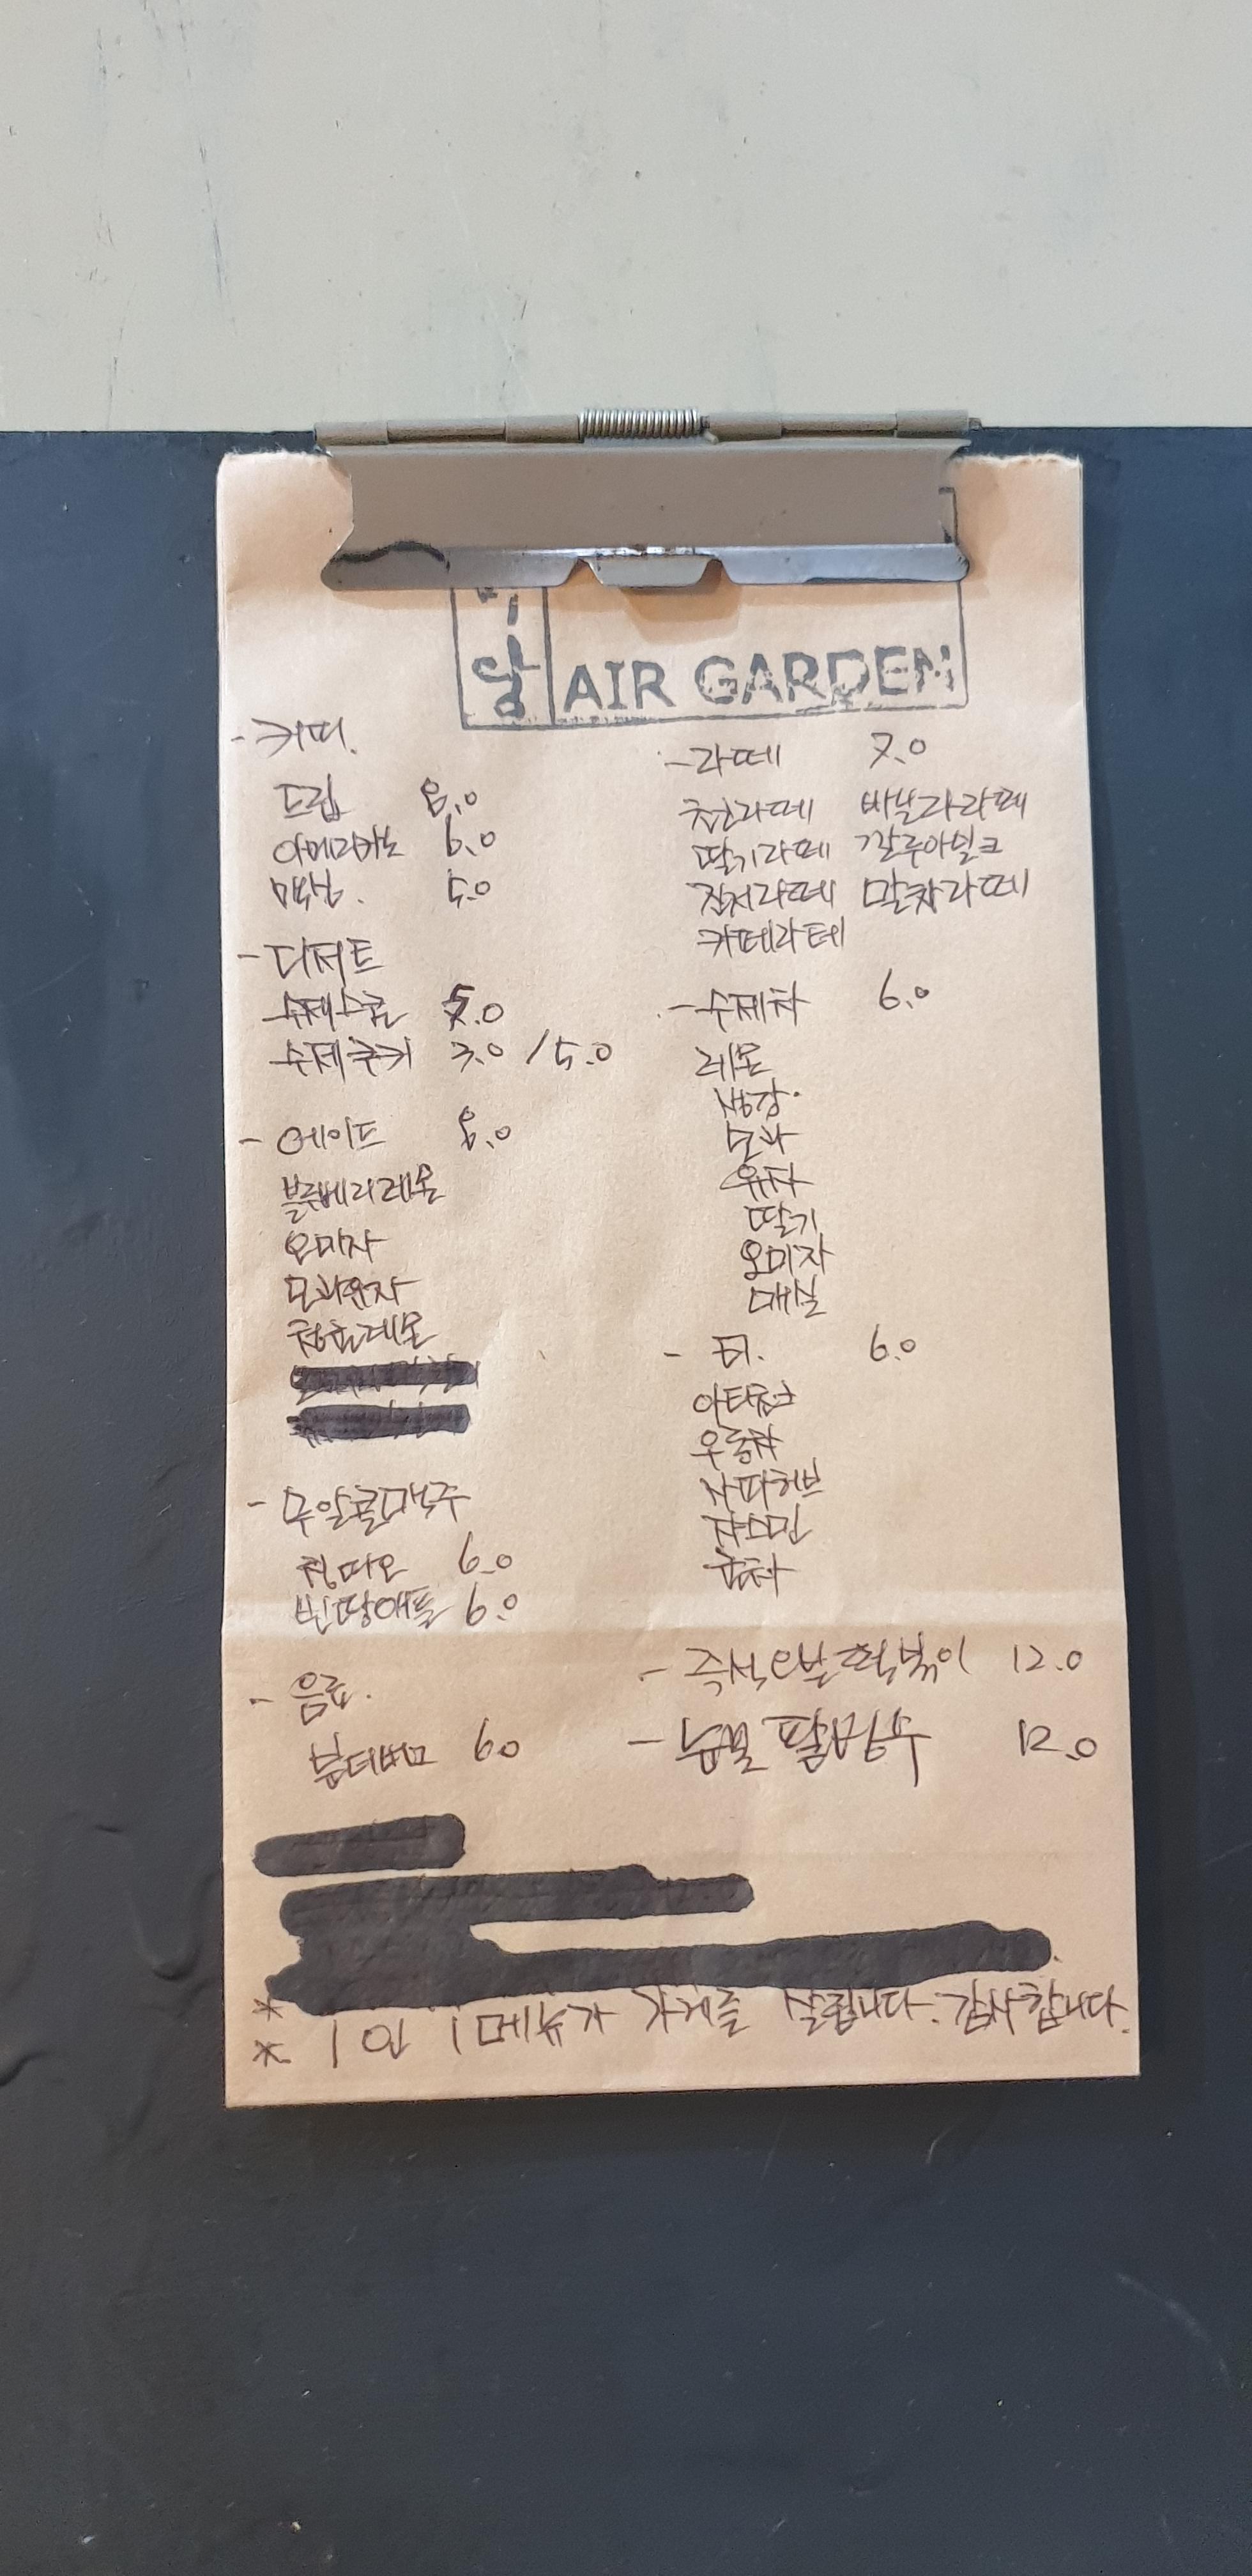 AIR GARDEN
- 커피.
드립 8.0
아메리카노 6.0
믹스 5.0
- 디저트
수제스콘 5.0
수제쿠키 3.0 / 5.0
- 에이드 8.0
블루베리레몬
오미자
모과유자
청귤레몬
- 무알콜맥주
칭따오 6.0
빈땅애플 6.0
- 음료.
분더버그 6.0
- 라떼 7.0
라떼 바닐라라떼
딸기라떼 깔루아밀크
진저라떼 말차라떼
카페라떼
- 수제차 6.0
레몬
생강
모과
유자
딸기
오미자
매실
- 티. 6.0
아티초크
우롱차
사파허브
쟈스민
홍차
- 즉석 떡볶이 12.0
- 눈꽃 팥빙수 12.0
*
* 1인 1메뉴가 가게를 살립니다. 감사합니다.